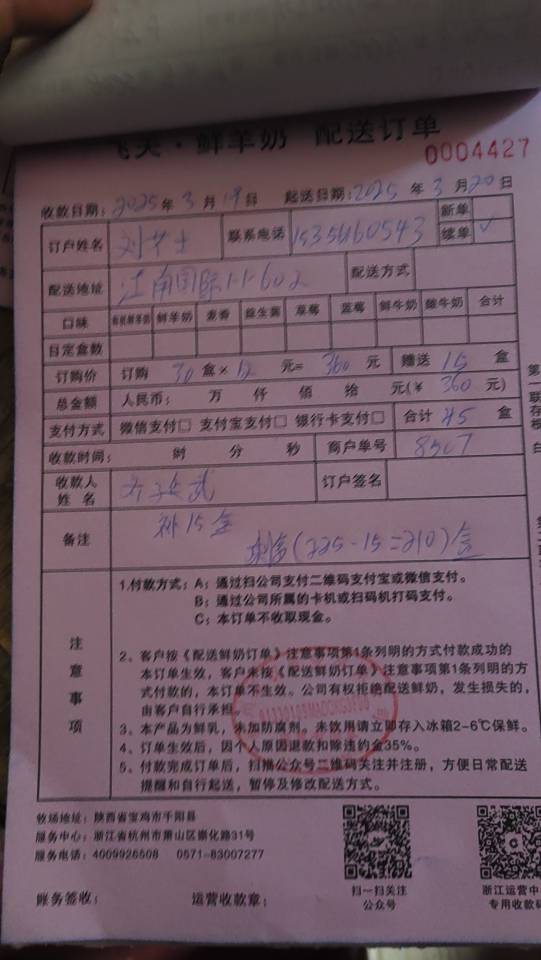 飞天·鲜羊奶 配送订单
0004427
收款日期：2025年3月19日 起送日期：2025年3月20日
订户姓名 刘女士 联系电话 新单
续单 ✓
配送地址 江南国际1-1-602 配送方式
口味 有机鲜羊奶 鲜羊奶 麦香 益生菌 草莓 蓝莓 鲜牛奶 酸牛奶 合计
日定盒数
订购价 订购 30 盒× 12 元= 360 元 赠送 15 盒
总金额 人民币： 万 仟 佰 拾 元(￥ 360 元)
支付方式 微信支付□ 支付宝支付□ 银行卡支付□ 合计 45 盒
收款时间： 时 分 秒 商户单号 8507
收款人
姓名 订户签名
备注 补15盒
剩余(225-15=210)盒
注意事项
1.付款方式：A：通过扫公司支付二维码支付宝或微信支付。
B：通过公司所属的卡机或扫码机打码支付。
C：本订单不收取现金。
2、客户按《配送鲜奶订单》注意事项第1条列明的方式付款成功的
本订单生效，客户未按《配送鲜奶订单》注意事项第1条列明的方
式付款的，本订单不生效。公司有权拒绝配送鲜奶，发生损失的，
由客户自行承担。
3、本产品为鲜乳，未加防腐剂。未饮用请立即存入冰箱2-6℃保鲜。
4、订单生效后，因个人原因退款扣除违约金35%。
5、付款完成订单后，扫描公众号二维码关注并注册，方便日常配送
提醒和自行起送，暂停及修改配送方式。
牧场地址：陕西省宝鸡市千阳县
服务中心：浙江省杭州市萧山区崇化路31号
服务电话：4009926508 0571-83007277
扫一扫关注
公众号
浙江运营中
专用收款码
账务签收： 运营收款章：
第一联
存根
白